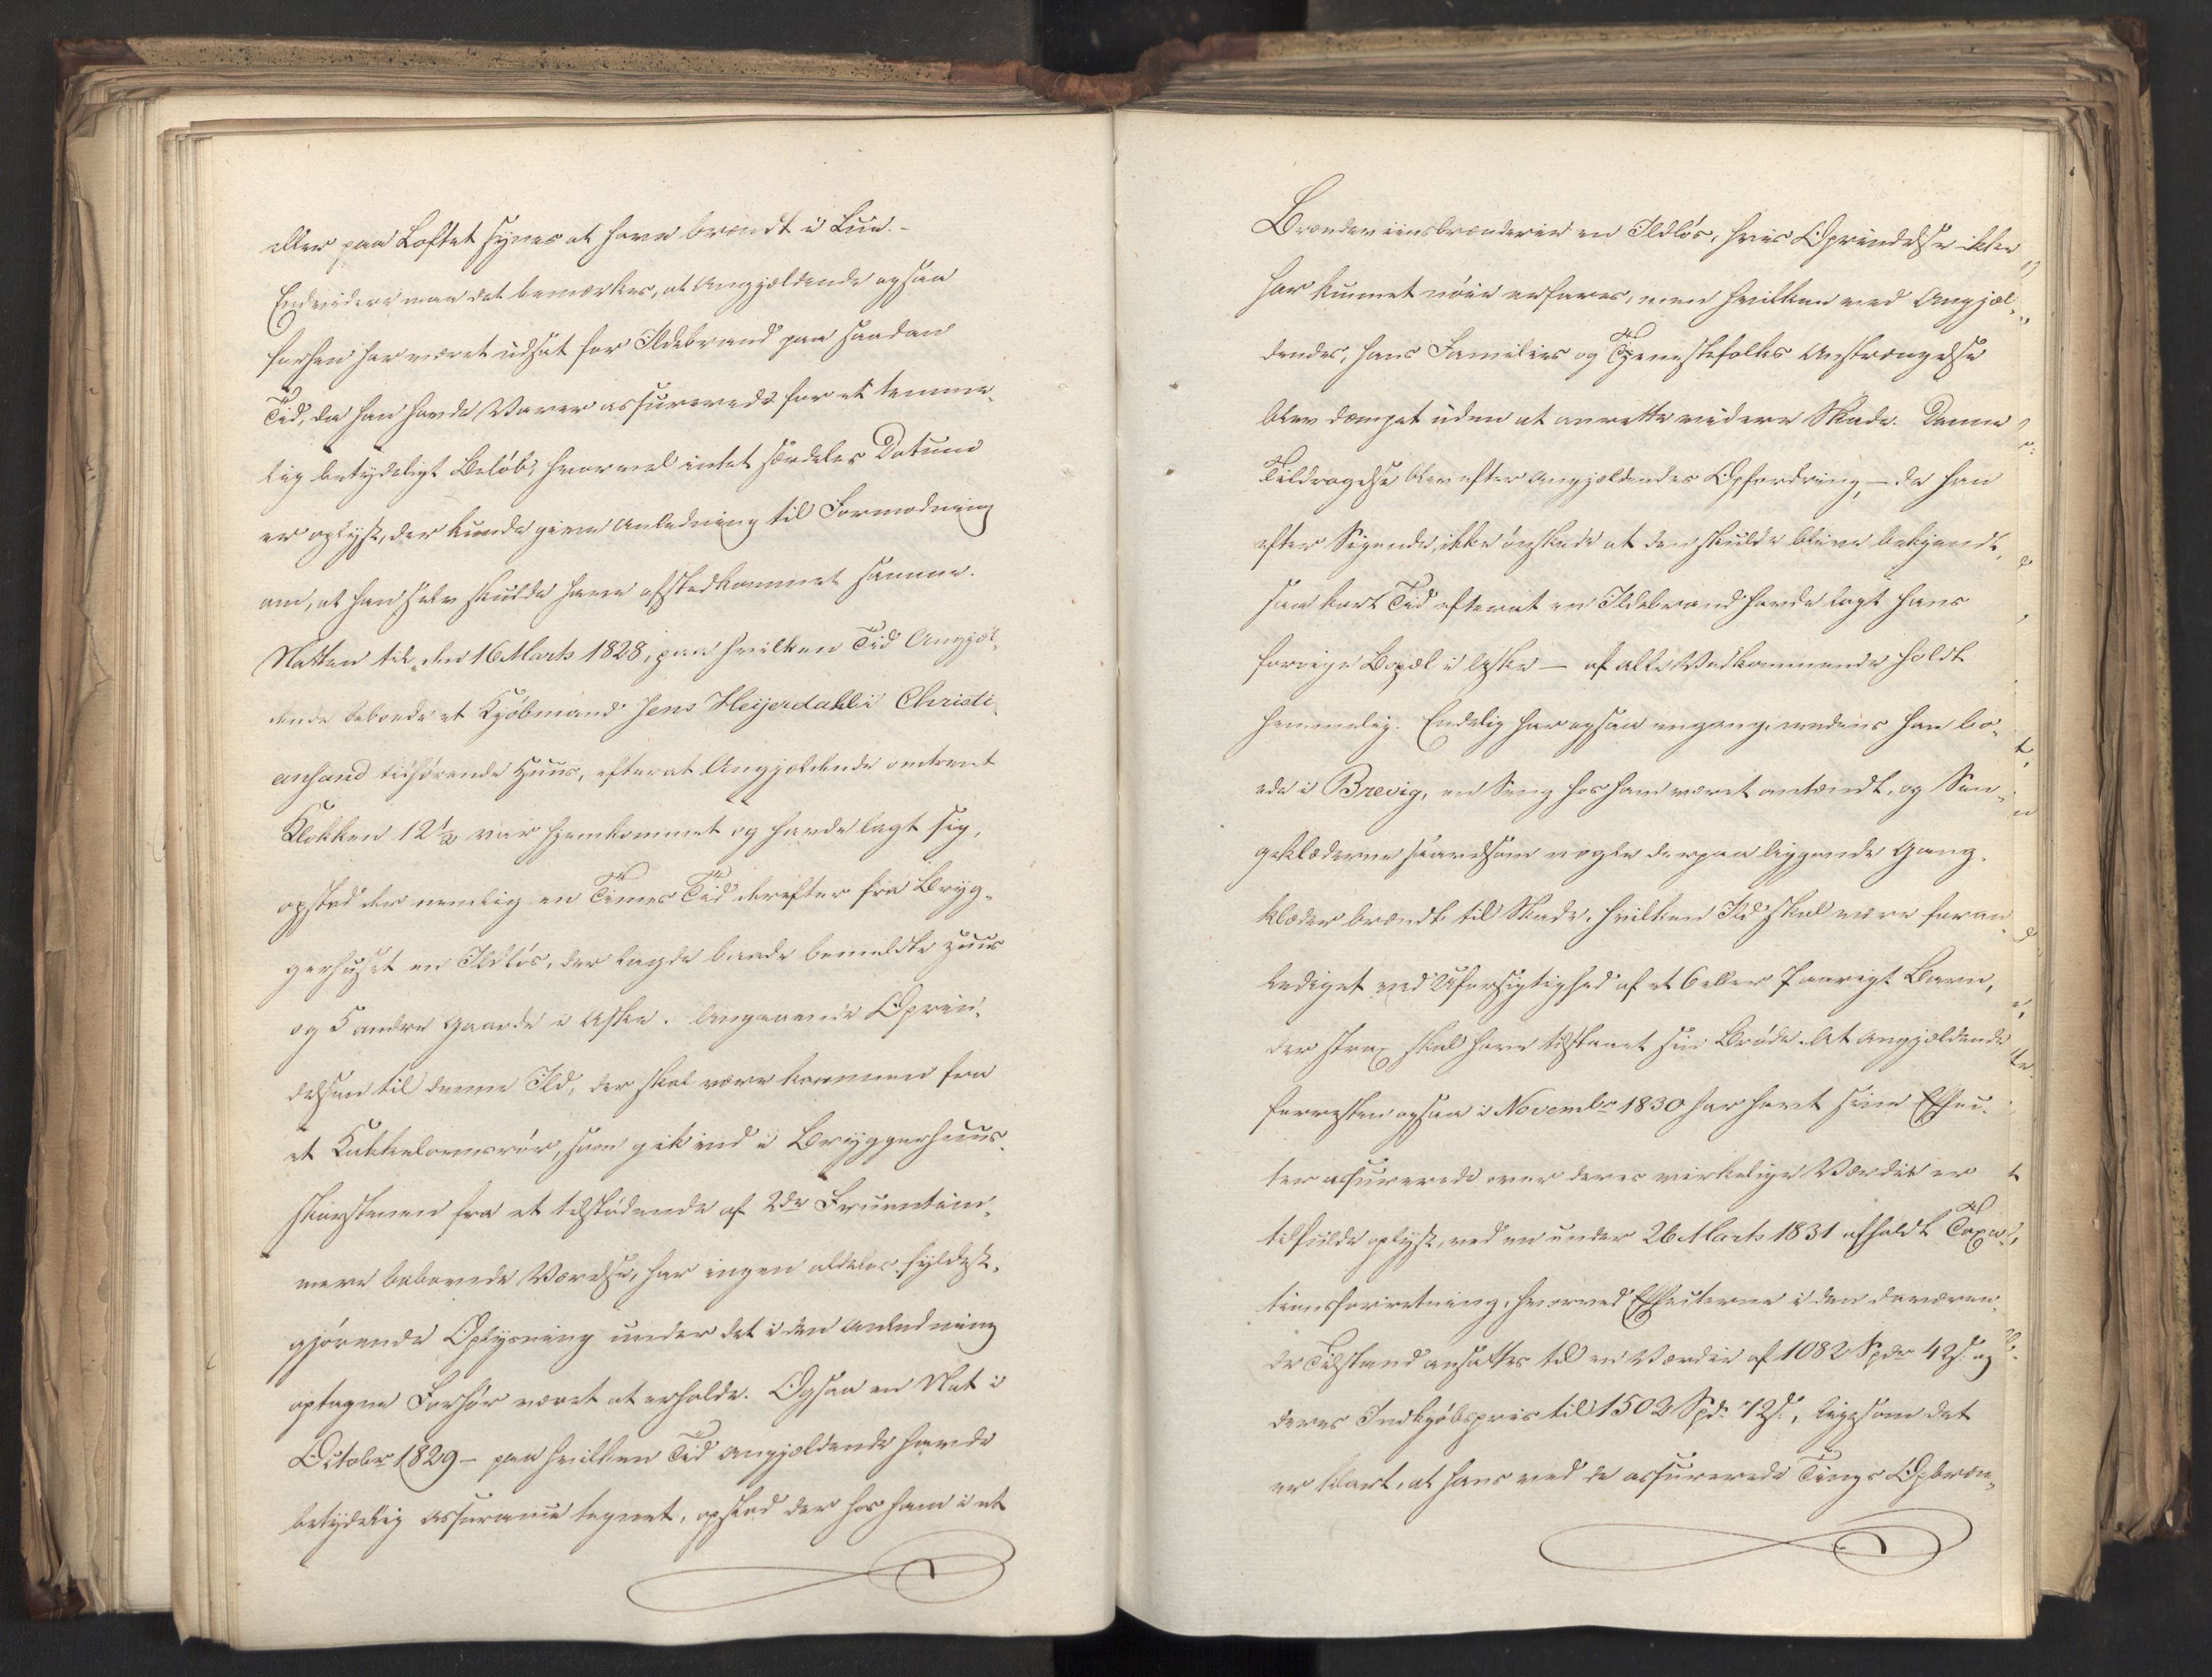 eller paa Loftet synes at have brændt i Lue.-
Endvidere maa det bemærkes, at Angjældende ogsaa
forhen har været udsat for Ildebrand paa saadan
Tid, da han havde Varer assurerede for et temme-
lig betydeligt Beløb, hvorvel intet særdeles Datum
er oplyst, der kunde give Anledning til Formodning
om, at han selv skulde have afstedkommet samme.
Natten til den 16 Marts 1828, paa hvilken Tid Angjæl-
dende beboede et Kjøbmand Jens Heyerdahl i Christi-
ansand tilhørende Huus, efterat Angjældende omtrent
Klokken 12½ var hjemkommet og havde lagt sig,
opstod der nemlig en Times Tid derefter fra Bryg-
gerhuset en Ildløs, der lagde baade bemeldte Huus
og 5 andre Gaarde i Aske. Angaaende Oprin-
delsen til denne Ild, der skal være kommen fra
et Kakkelovnsrør, som gik ind i Bryggerhuus-
skorstenen fra et tilstødende af 2de Fruentim-
mere beboende Værelse, har ingen aldeles fyldest-
gjørende Oplysning under det i den Anledning
optagne Forhør været at erholde. Ogsaa en Nat i
Octobr 1829 - paa hvilken Tid Angjældende havde
betydelig Assurance tegnet, opstod der hos ham i et
Brændeviinsbrænderie en Ildløs, hvis Oprindelse ikke
har kunnet nøie erfares, men hvilken ved Angjæl-
dendes, hans Families og Tjenestefolks Anstrængelse
blev dæmpet uden at anrette videre Skade. Denne
Tildragelse blev efter Angjældendes Opfordring, - da han
efter Sigende, ikke ønskede at den skulde blive bekjendt,
saa kort Tid efterat en Ildebrand havde lagt hans
forrige Bopæl i Aske - af alle Vedkommende holdt
hemmelig. Endelig har ogsaa engang, medens han bo-
ede i Brevig, en Seng hos ham været antændt, og Sen-
geklæderne saavelsom nogle derpaa liggende Gang-
klæder brændt til Skade, hvilken Ild skal være foran-
lediget ved Uforsigtighed af et 6 eller 7 aarigt Barn,
der strax skal have tilstaaet sin Brøde. At Angjældende
forresten ogsaa i Novembr 1830 har havt sine Effec-
ter assurerede over deres virkelige Værdie er
tilfulde oplyst, ved en under 26 Marts 1831 afholdt Taxa-
tionsforretning, hvorved Effecterne i den daværen-
de Tilstand ansattes til en Værdie af 1082 Spdr 42 s. og
deres Indkjøbspris til 1502 Spd. 72 s., ligesom det
er klart, at hans ved de assurerede Tings Opbræn-